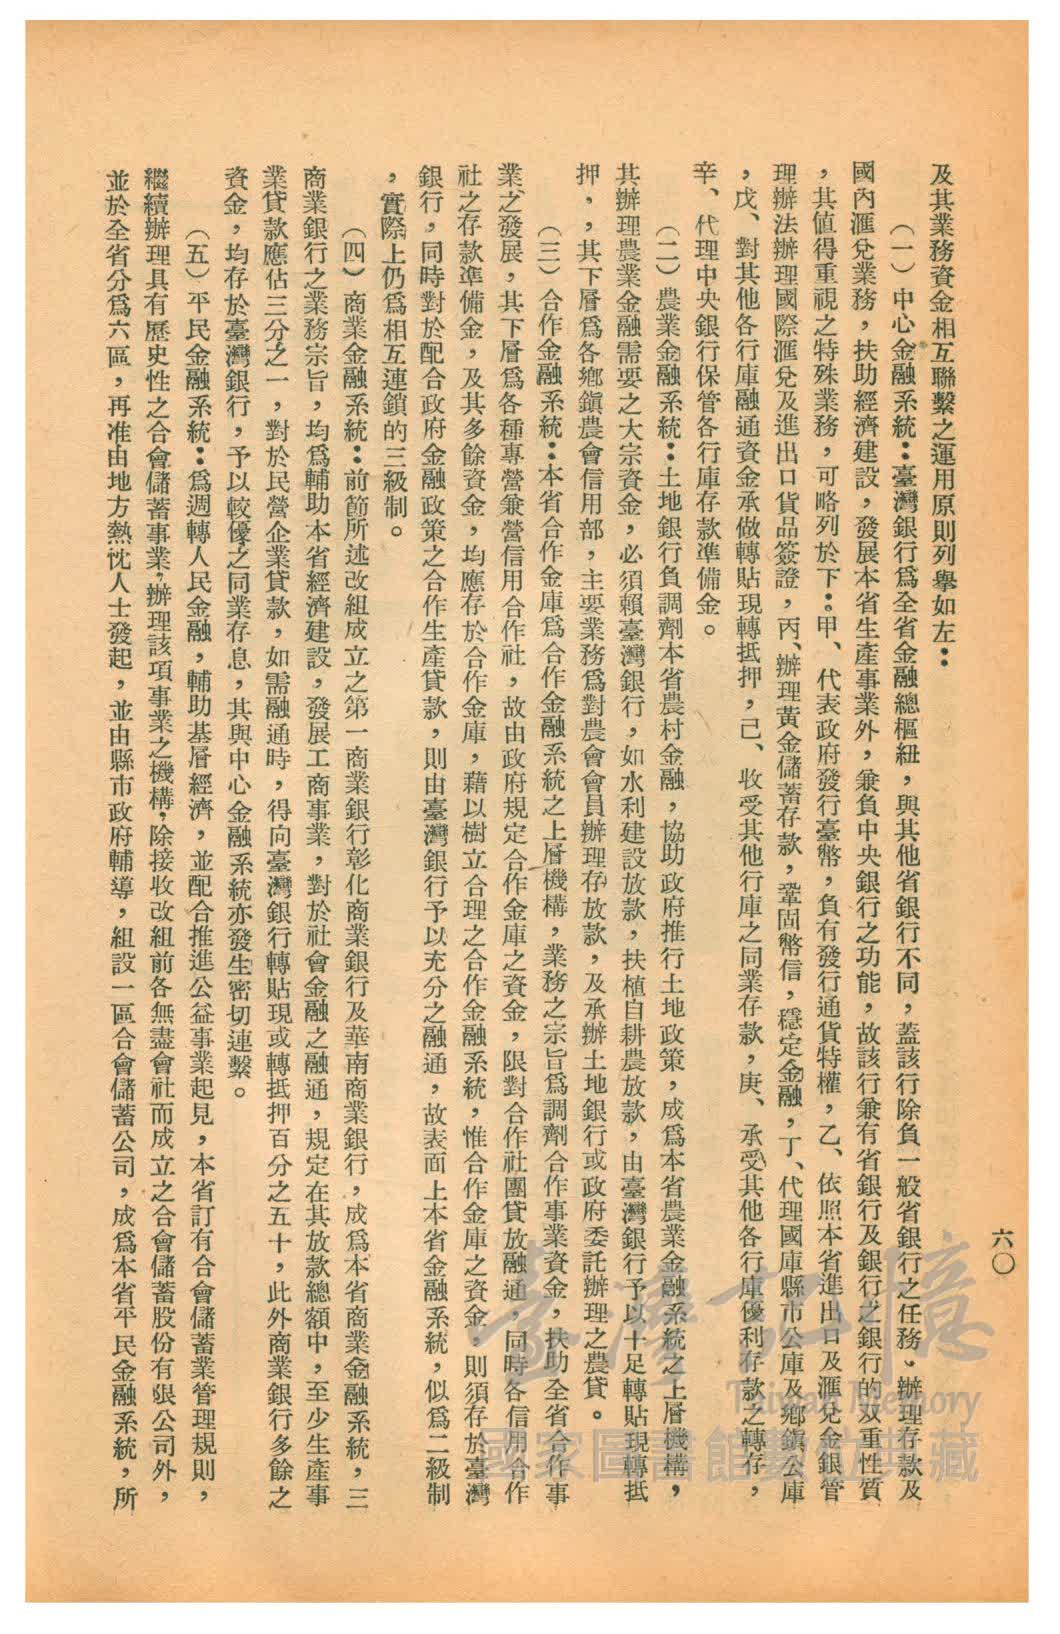 六〇
及其業務資金相互聯繫之運用原則列舉如左：
（一）中心金融系統：臺灣銀行爲全省金融總樞紐，與其他省銀行不同，蓋該行除負一般省銀行之任務，辦理存款及
國內滙兌業務，扶助經濟建設，發展本省生產事業外，兼負中央銀行之功能，故該行兼有省銀行及銀行之銀行的双重性質
，其值得重視之特殊業務，可略列於下：甲、代表政府發行臺幣，負有發行通貨特權，乙、依照本省進出口及滙兌金銀管
理辦法辦理國際滙兌及進出口貨品簽證，丙、辦理黃金儲蓄存款，鞏固幣信，穩定金融，丁、代理國庫縣市公庫及鄉鎭公庫
，戊、對其他各行庫融通資金承做轉貼現轉抵押，己、收受其他行庫之同業存款，庚、承受其他各行庫優利存款之轉存，
辛、代理中央銀行保管各行庫存款準備金。
（二）農業金融系統：土地銀行負調劑本省農村金融，協助政府推行土地政策，成爲本省農業金融系統之上層機構，
其辦理農業金融需要之大宗資金，必須賴臺灣銀行，如水利建設放款，扶植自耕農放款，由臺灣銀行予以十足轉貼現轉抵
押，，其下層爲各鄉鎭農會信用部，主要業務爲對農會會員辦理存放款，及承辦土地銀行或政府委託辦理之農貸。
（三）合作金融系統：本省合作金庫爲合作金融系統之上層機構，業務之宗旨爲調劑合作事業資金，扶助全省合作事
業之發展，其下層爲各種專營兼營信用合作社，故由政府規定合作金庫之資金，限對合作社團貸放融通，同時各信用合作
社之存款準備金，及其多餘資金，均應存於合作金庫，藉以樹立合理之合作金融系統，惟合作金庫之資金，則須存於臺灣
銀行，同時對於配合政府金融政策之合作生產貸款，則由臺灣銀行予以充分之融通，故表面上本省金融系統，似爲二級制
，實際上仍爲相互連鎖的三級制。
（四）商業金融系統：前節所述改組成立之第一商業銀行彰化商業銀行及華南商業銀行，成爲本省商業金融系統，三
商業銀行之業務宗旨，均爲輔助本省經濟建設，發展工商事業，對於社會金融之融通，規定在其放款總額中，至少生產事
業貸款應佔三分之一，對於民營企業貸款，如需融通時，得向臺灣銀行轉貼現或轉抵押百分之五十，此外商業銀行多餘之
資金，均存於臺灣銀行，予以較優之同業存息，其與中心金融系統亦發生密切連繫。
（五）平民金融系統：爲週轉人民金融，輔助基層經濟，並配合推進公益事業起見，本省訂有合會儲蓄業管理規則，
繼續辦理具有歷史性之合會儲蓄事業，辦理該項事業之機構，除接收改組前各無盡會社而成立之合會儲蓄股份有限公司外，
並於全省分爲六區，再准由地方熱忱人士發起，並由縣市政府輔導，組設一區合會儲蓄公司，成爲本省平民金融系統，所
臺灣記憶
Taiwan Memory
國家圖書館數位典藏